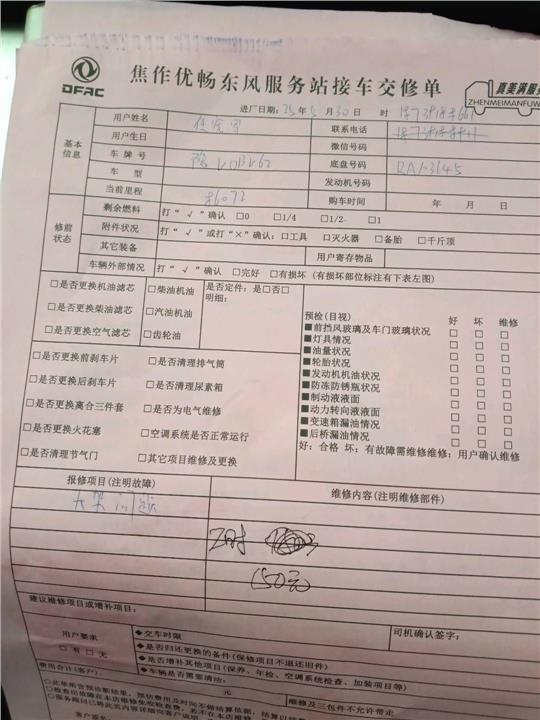 DFAC
焦作优畅东风服务站接车交修单
真美满服务
ZHENMEIMANFUW
进厂日期: 25年 5 月 30 日 时
基本信息
用户姓名
联系电话
用户生日
微信号码
车 牌 号
底盘号码
车 型
发动机号码
当前里程
购车时间 年 月 日
修前状态
剩余燃料 打“ √ ”确认 □0 □1/4 □1/2 □1
附件状况 打“ √ ”或打“×”确认: □工具 □灭火器 □备胎 □千斤顶
其它装备 用户寄存物品
车辆外部情况 打“ √ ”确认 □完好 □有损坏 (有损坏部位标注有下表左图)
□是否更换机油滤芯 □柴油机油 是否定件: 是□否□
明细:
□是否更换柴油滤芯 □汽油机油
□是否更换空气滤芯 □齿轮油
预检(目视) 好 坏 维修
■前挡风玻璃及车门玻璃状况 □ □ □
■灯具情况 □ □ □
■油量状况 □ □ □
■轮胎状况 □ □ □
■发动机机油状况 □ □ □
■防冻防锈瓶状况 □ □ □
■制动液液面 □ □ □
■动力转向液液面 □ □ □
■变速箱漏油情况 □ □ □
■后桥漏油情况 □ □ □
好: 合格 坏: 有故障需维修维修: 用户确认维修
□是否更换前刹车片 □是否清理排气筒
□是否更换后刹车片 □是否清理尿素箱
□是否更换离合三件套 □是否为电气维修
□是否更换火花塞 □空调系统是否正常运行
□是否清理节气门 □其它项目维修及更换
报修项目(注明故障) 维修内容(注明维修部件)
大架问题
2时
150元
建议维修项目或增补项目:
用户要求
□ 有 □ 无
◆交车时限 司机确认签字:
◆是否归还更换的备件(保修项目不退还旧件)
◆是否增补其他项目(保养、年检、空调系统检查、加装项目等)
◆车辆是否需要清洁:
费用合计(客户): 元
维修及三包件不允许带走